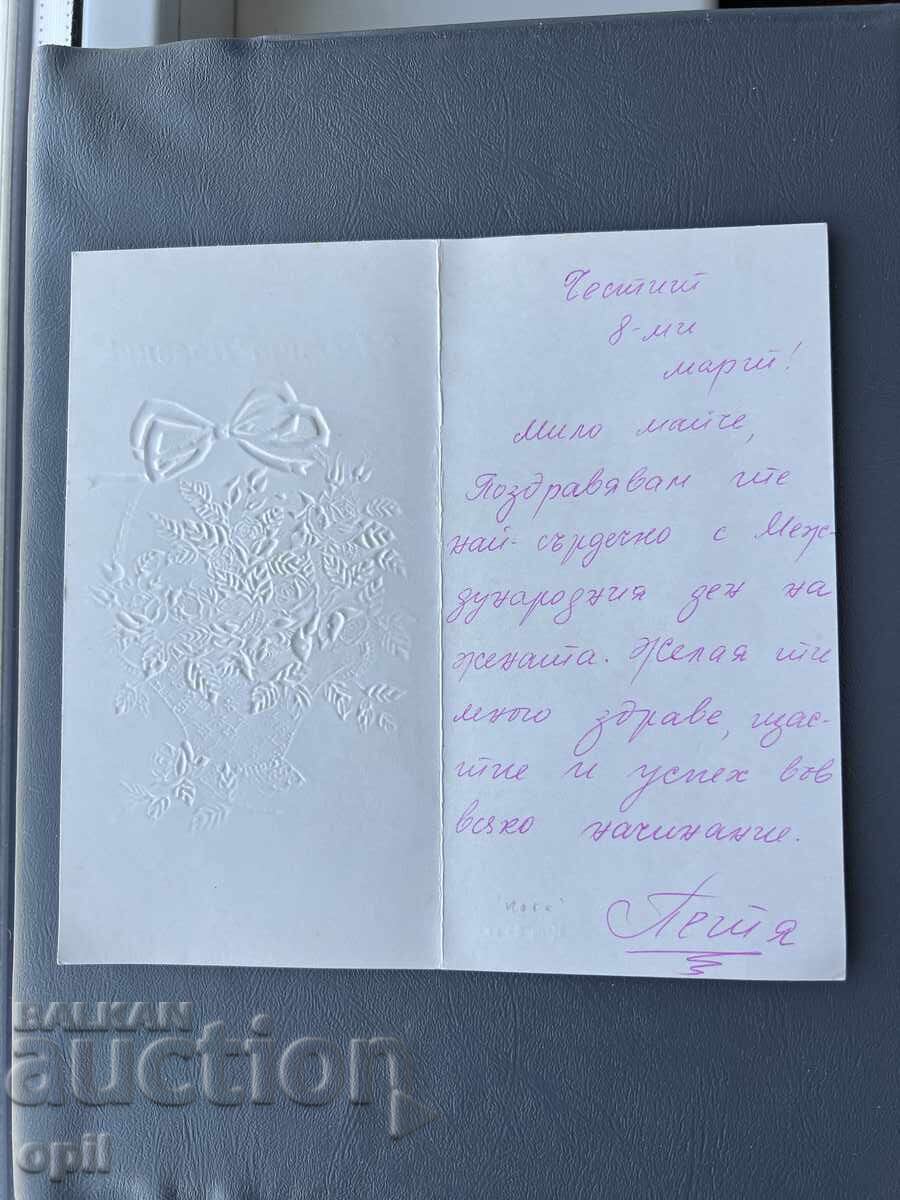 Честит
8-ми
март!
Мило майче,
Поздравявам те
най-сърдечно с Меж-
дународния ден на
жената. Желая ти
много здраве, щас-
тие и успех във
всяко начинание.
Петя
BALKAN
auction
opil